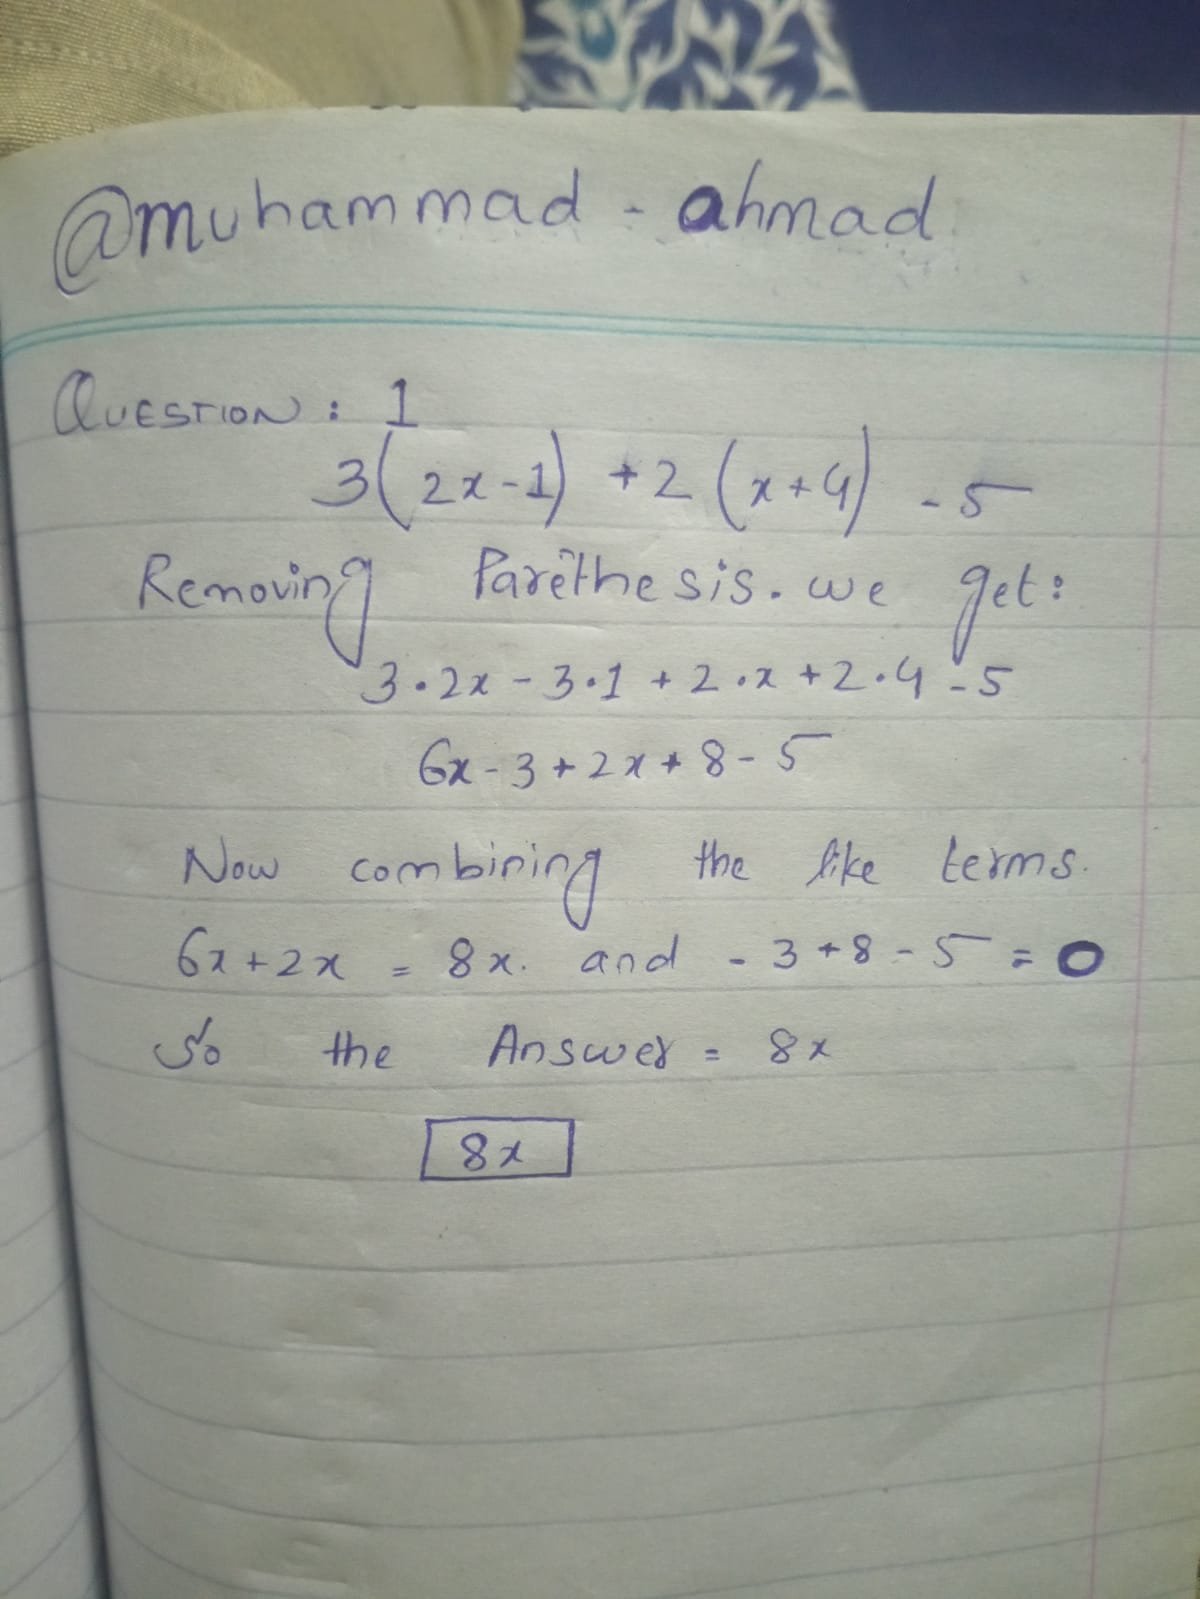 @muhammad - ahmad
QUESTION : 1
3(2x-1) +2 (x+4) - 5
Removing Parêthesis. we get:
3.2x - 3.1 + 2.x + 2.4 - 5
6x - 3 + 2x + 8 - 5
Now combining the like terms.
6x + 2x = 8x. and - 3 + 8 - 5 = 0
So the Answer = 8x
8x